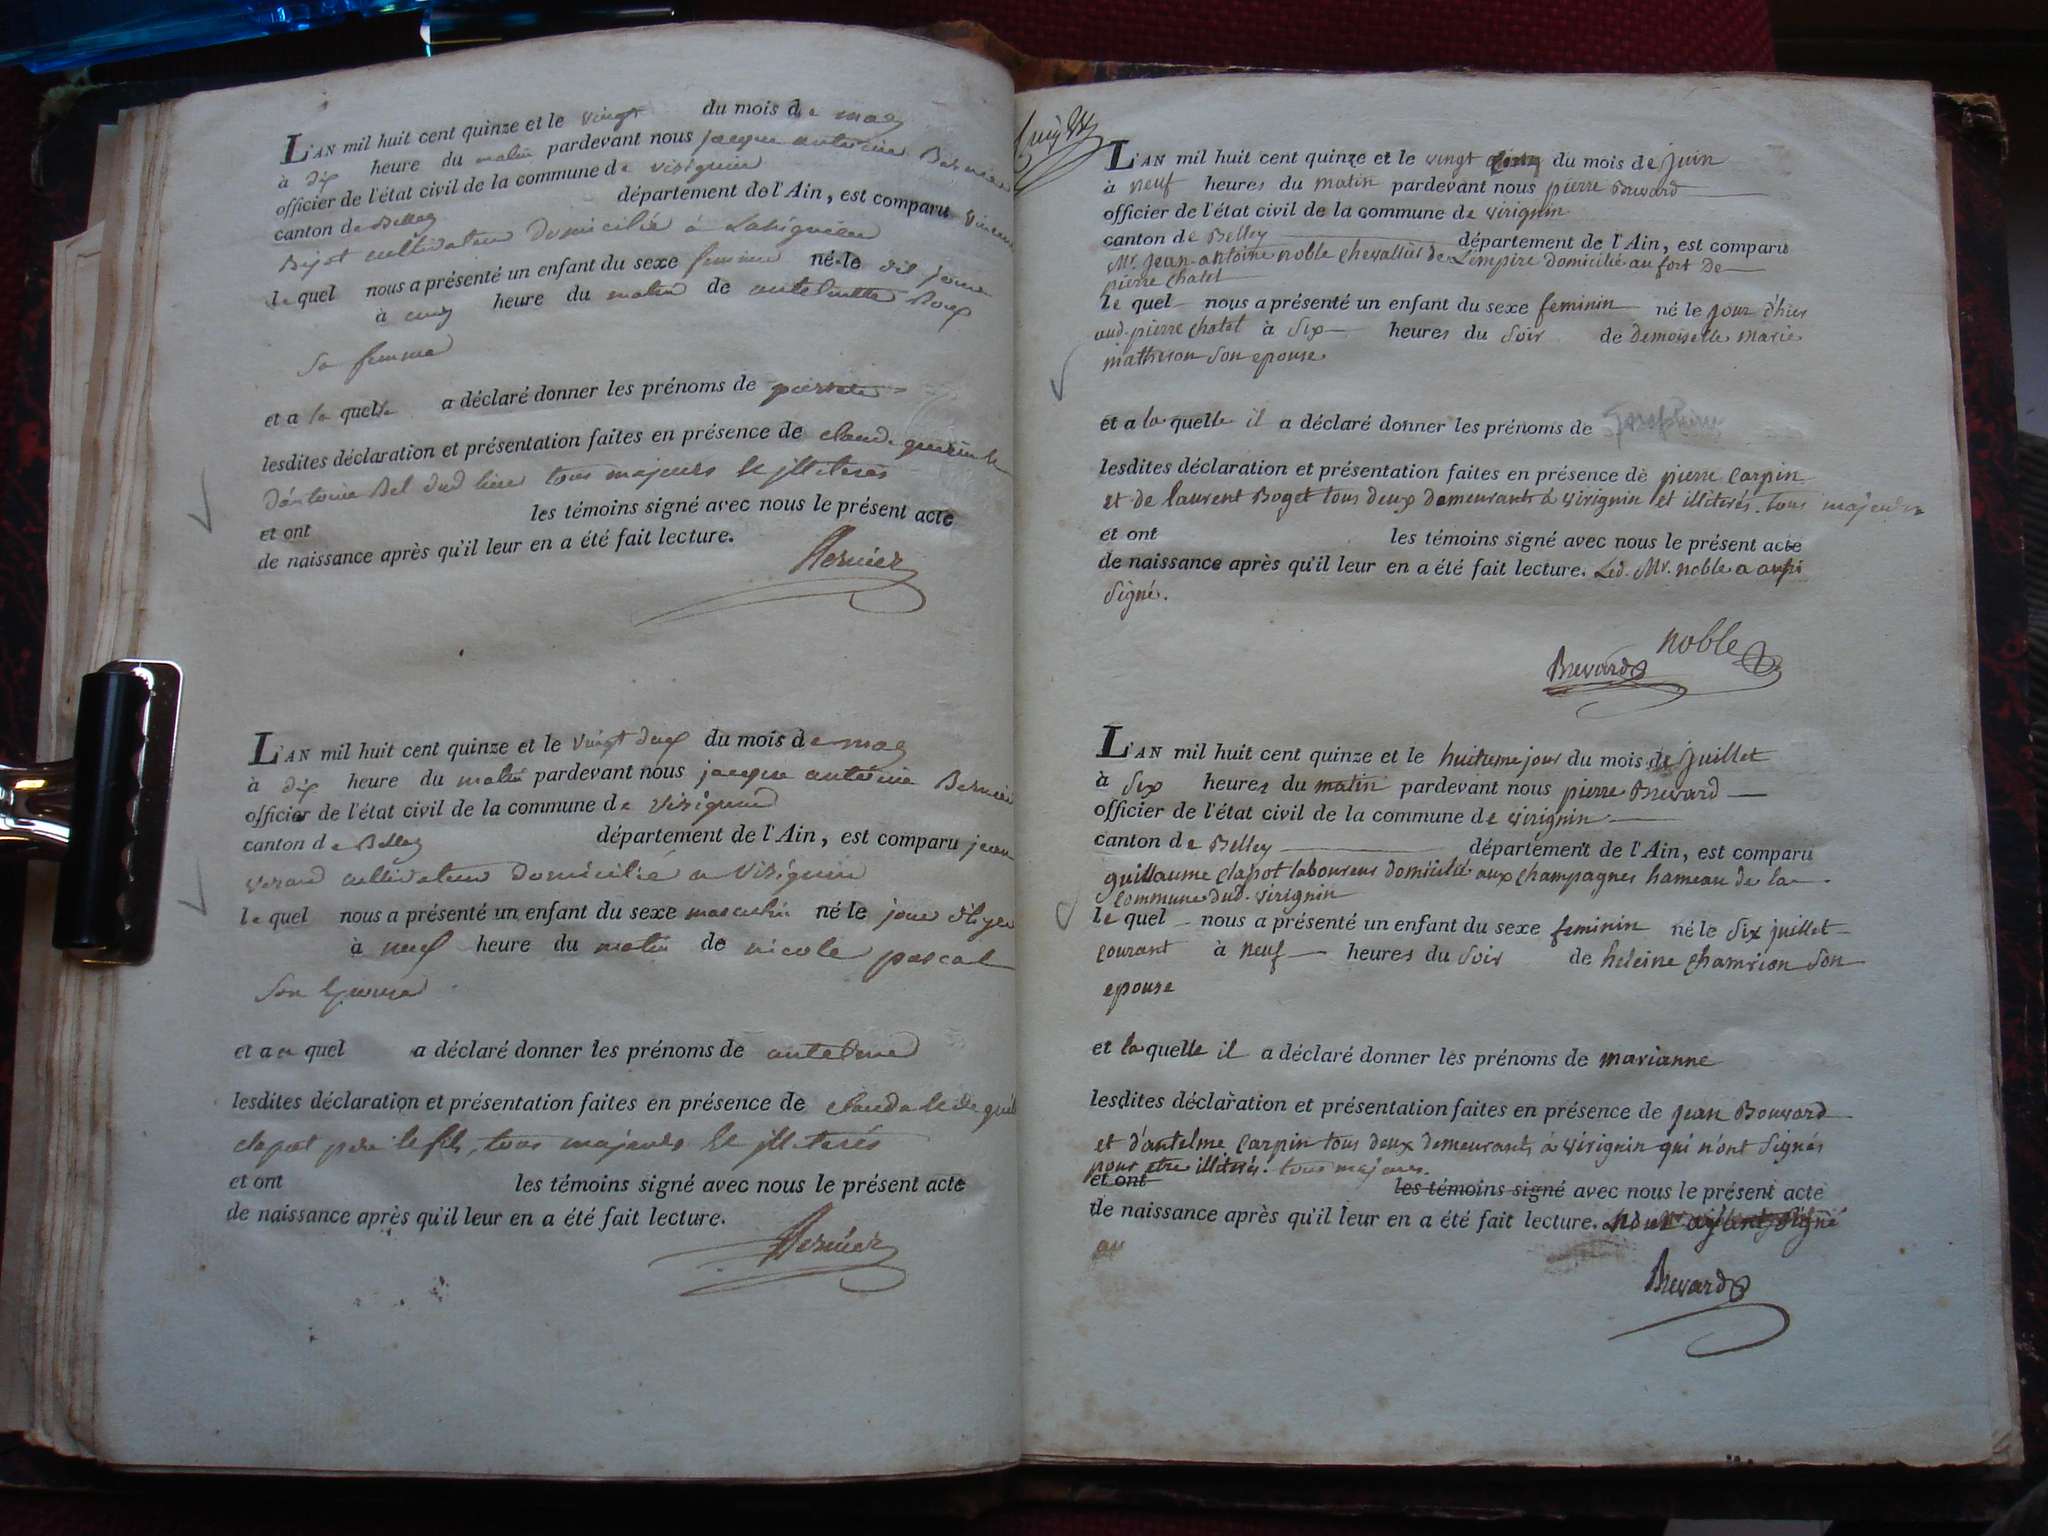 L'AN mil huit cent quinze et le vingt du mois de may
à dix heure du matin pardevant nous jacque antoine Bernier
officier de l'état civil de la commune de virignin
canton de Belley département de l'Ain, est comparu vincent
cultivateur domicilié à
le quel nous a présenté un enfant du sexe feminin né le dit jour
à cinq heure du matin de antelmette Roux
sa femme
et a la quelle a déclaré donner les prénoms de pierrette
lesdites déclaration et présentation faites en présence de claude
d'antoine Bel dud lieu tous majeurs et illiterés
et ont les témoins signé avec nous le présent acte
de naissance après qu'il leur en a été fait lecture.
Bernier
L'AN mil huit cent quinze et le vingt deux du mois de may
à dix heure du matin pardevant nous jacque antoine Bernier
officier de l'état civil de la commune de virignin
canton de Belley département de l'Ain, est comparu jean
cultivateur domicilié a virignin
le quel nous a présenté un enfant du sexe masculin né le jour d'hyer
à neuf heure du matin de nicole pascal
son epouse
et a u quel a déclaré donner les prénoms de antelme
lesdites déclaration et présentation faites en présence de
clapot père le fils, tous majeurs et illiterés
et ont les témoins signé avec nous le présent acte
de naissance après qu'il leur en a été fait lecture.
Bernier
L'AN mil huit cent quinze et le vingt cinq du mois de juin
à neuf heures du matin pardevant nous pierre Brevard
officier de l'état civil de la commune de virignin
canton de Belley département de l'Ain, est comparu
Mr. jean-antoine noble chevallier de L'empire domicilié au fort de
pierre chatel
le quel nous a présenté un enfant du sexe feminin né le jour d'hier
aud. pierre chatel à six heures du soir de demoiselle marie
matheron son epouse
et a la quelle il a déclaré donner les prénoms de Josephine
lesdites déclaration et présentation faites en présence de pierre carpin
et de laurent Boget tous deux demeurants à virignin et illiterés. tous majeurs
et ont les témoins signé avec nous le présent acte
de naissance après qu'il leur en a été fait lecture. Led. Mr. noble a aussi
signé.
noble
Brevard
L'AN mil huit cent quinze et le huitieme jour du mois de juillet
à six heures du matin pardevant nous pierre Brevard
officier de l'état civil de la commune de virignin
canton de Belley département de l'Ain, est comparu
guillaume clapot laboureur domicilié aux champagnes hameau de la
commune dud. virignin
le quel nous a présenté un enfant du sexe feminin né le six juillet
courant à neuf heures du soir de heleine chamrion son
epouse
et la quelle il a déclaré donner les prénoms de marianne
lesdites déclaration et présentation faites en présence de jean Bouvard
et d'antelme carpin tous deux demeurants à virignin qui n'ont signés
pour etre illiterés. tous majeurs.
et ont les témoins signé avec nous le présent acte
de naissance après qu'il leur en a été fait lecture.
Brevard